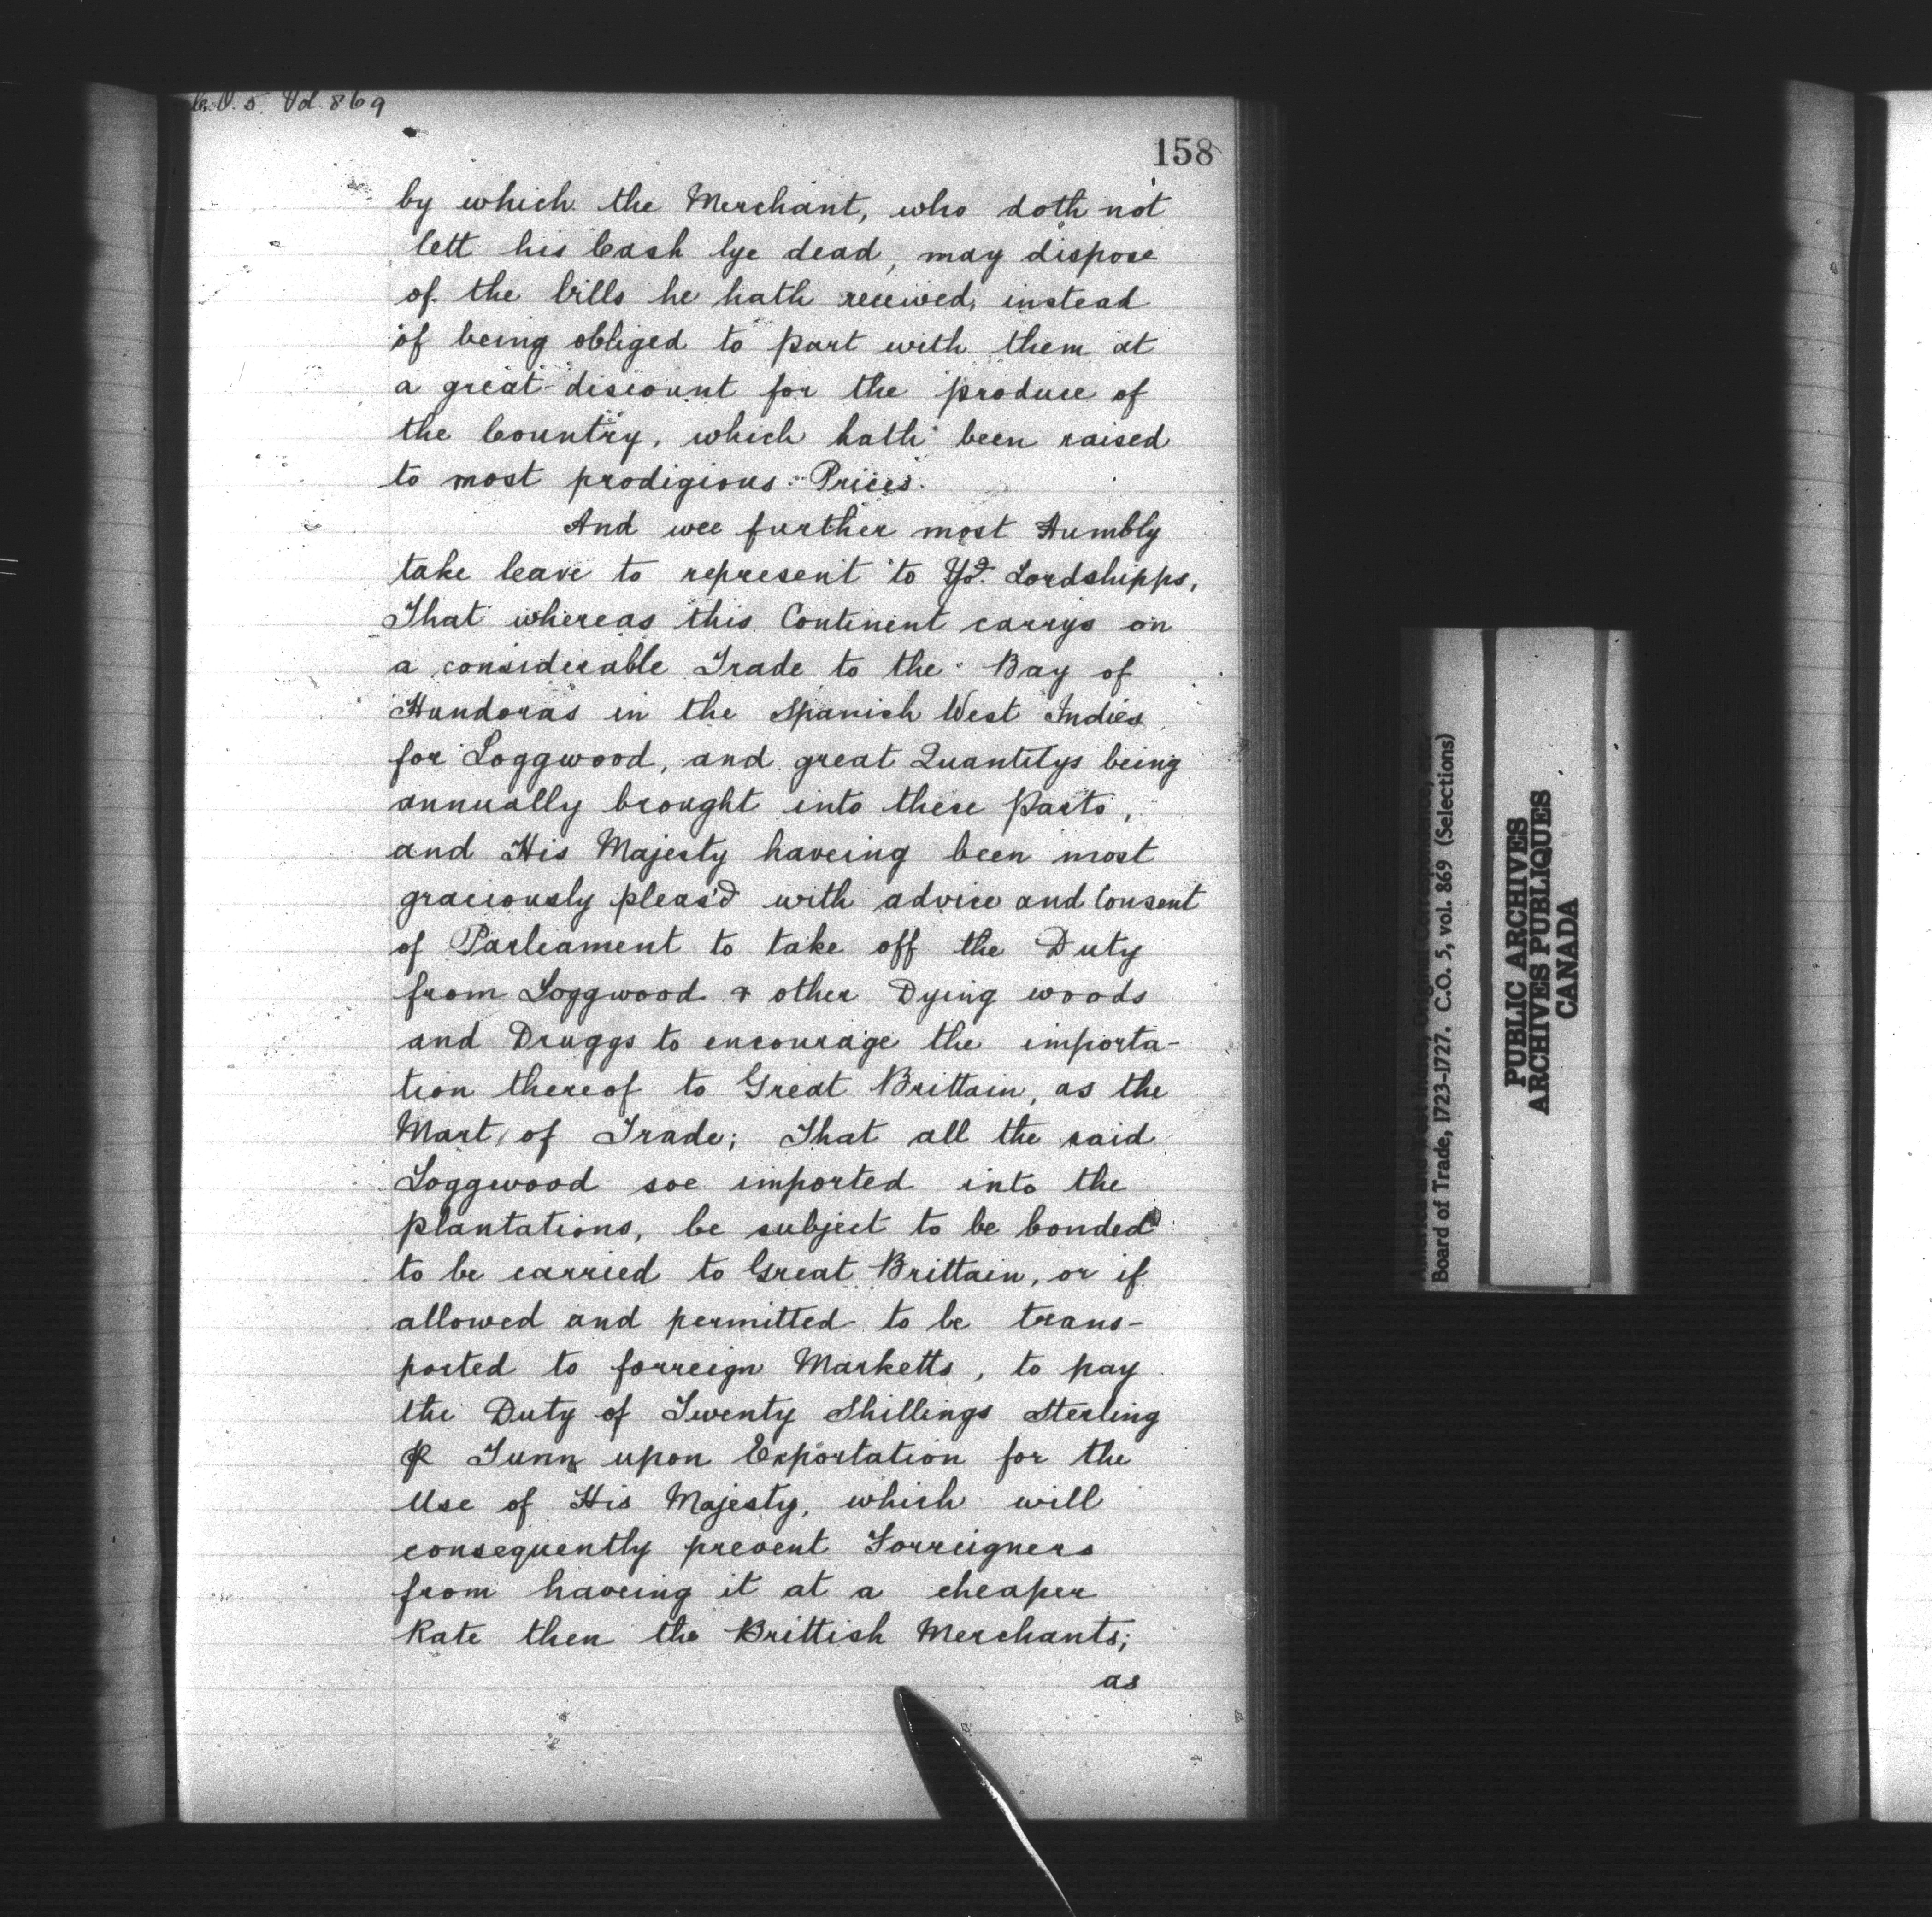 C.O. 5 Vol. 869
158
by which the Merchant, who doth not
lett his Cash lye dead, may dispose
of the bills he hath received, instead
of being obliged to part with them at
a great discount for the produce of
the Country, which hath been raised
to most prodigious Prices.
And wee further most Humbly
take leave to represent to Yor. Lordshipps,
That whereas this Continent carrys on
a considerable Trade to the Bay of
Hundoras in the Spanish West Indies
for Loggwood, and great Quantitys being
annually brought into these Parts,
and His Majesty haveing been most
graciously pleas'd with advice and Consent
of Parliament to take off the Duty
from Loggwood & other Dying woods
and Druggs to encourage the importa-
tion thereof to Great Brittain, as the
Mart of Trade; That all the said
Loggwood soe imported into the
plantations, be subject to be bonded
to be carried to Great Brittain, or if
allowed and permitted to be trans-
ported to forreign Marketts, to pay
the Duty of Twenty Shillings Sterling
⅌ Tunn upon Exportation for the
Use of His Majesty, which will
consequently prevent Forreigners
from haveing it at a cheaper
Rate then the Brittish Merchants;
as
America and West Indies, Original Correspondence, etc.
Board of Trade, 1723-1727. C.O. 5, vol. 869 (Selections)
PUBLIC ARCHIVES
ARCHIVES PUBLIQUES
CANADA